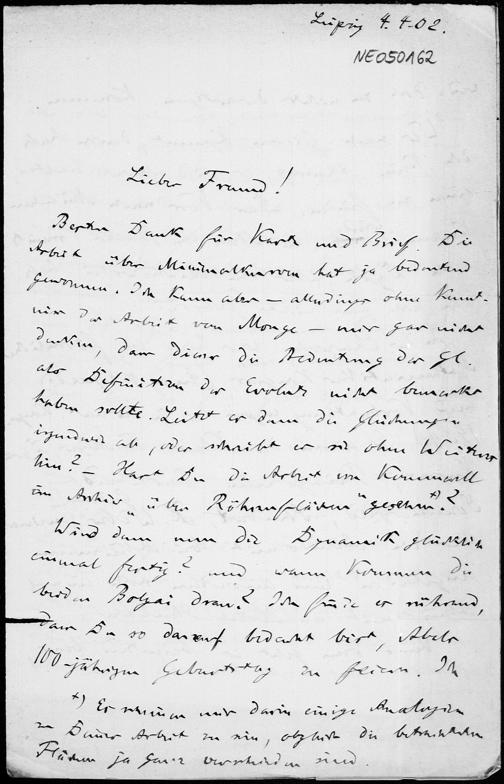 Leipzig 4.4.02.
NE050162
Lieber Freund!
Besten Dank für Karte und Brief. Die
Arbeit über Minimalkurven hat ja bedeutend
gewonnen. Ich kann aber – allerdings ohne Kennt-
nis der Arbeit von Monge – mir gar nicht
denken, dass dieser die Bedeutung der Gl.
als Definition der Evolute nicht bemerkt
haben sollte. Leitet er denn die Gleichungen
irgendwie ab, oder schreibt er sie ohne Weiteres
hin? – Hast Du die Arbeit von Kommerell
im Archiv „über Röhrenflächen" gesehen*)?
Wird denn nun die Dynamik glücklich
einmal fertig? und wann kommen die
beiden Bolyai dran? Ich finde es rührend,
dass Du so darauf bedacht bist, Abels
100-jährigen Geburtstag zu feiern. Ich
*) Es scheinen mir darin einige Analogien
zu Deiner Arbeit zu sein, obgleich die betrachteten
Flächen ja ganz verschieden sind.